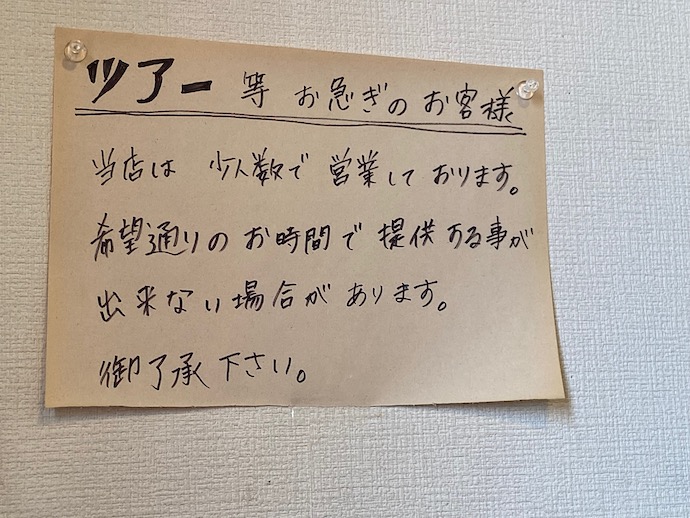 ツアー等 お急ぎの お客様
当店は 少人数で 営業して おります。
希望通りの お時間で 提供する事が
出来ない場合が あります。
御了承 下さい。